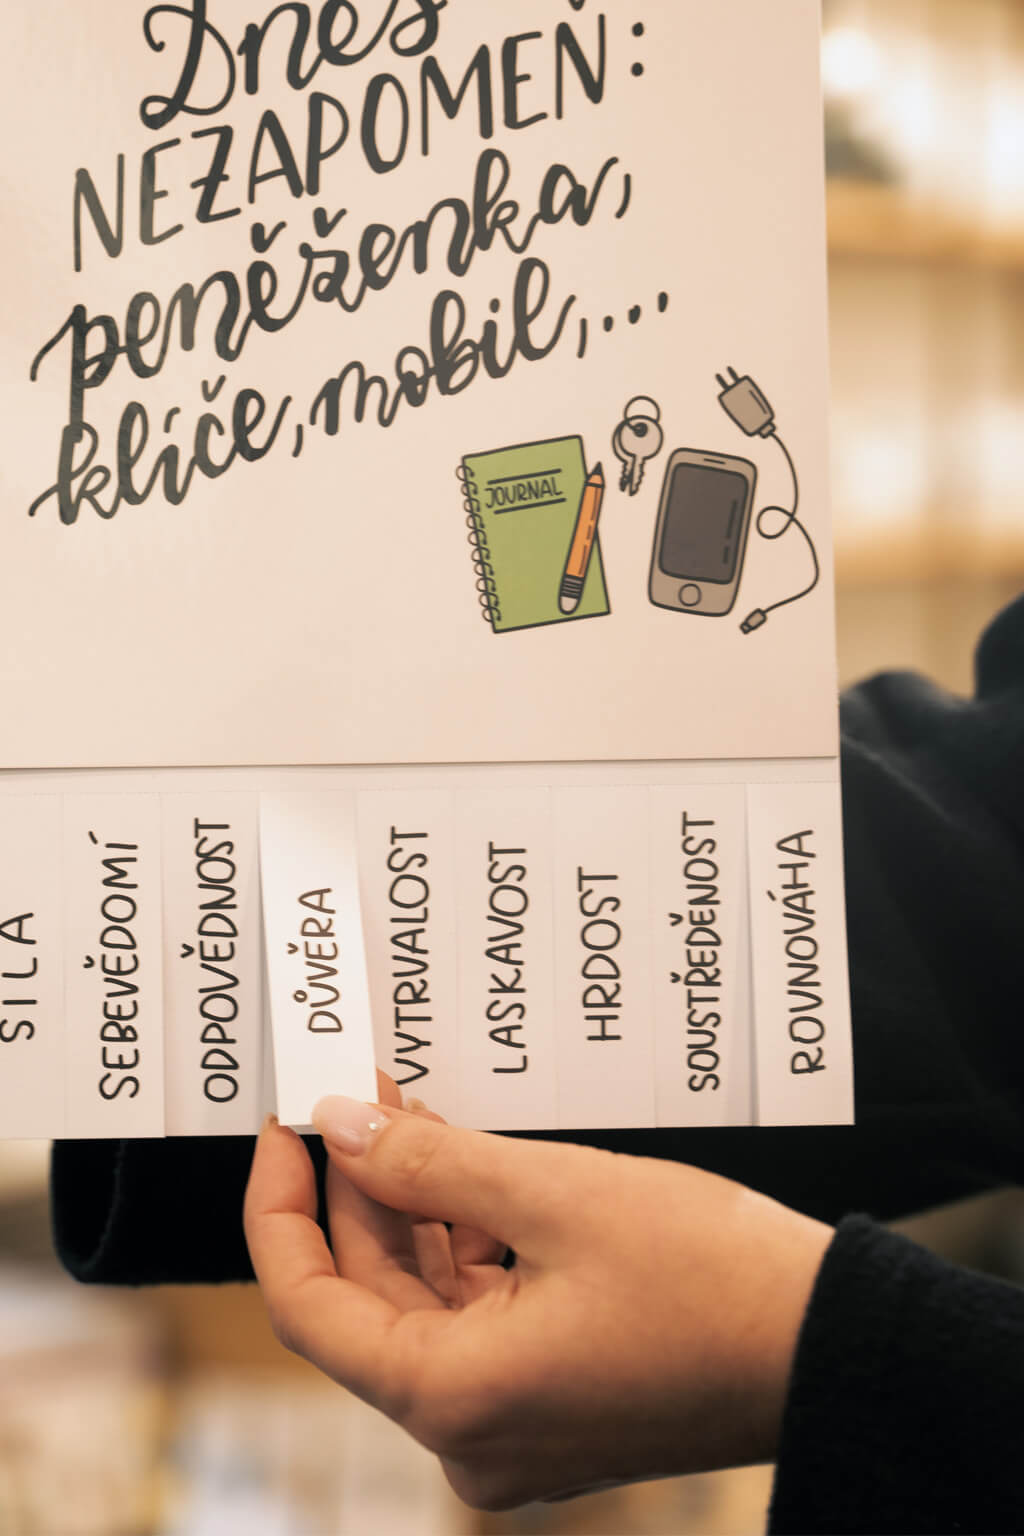 Dnes
NEZAPOMEŇ:
peněženka,
klíče, mobil,...
JOURNAL
SILA
SEBEVĚDOMÍ
ODPOVĚDNOST
DŮVĚRA
VYTRVALOST
LASKAVOST
HRDOST
SOUSTŘEDĚNOST
ROVNOVÁHA